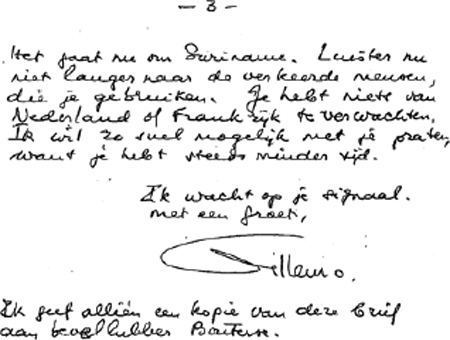 - 3 -
Het gaat nu om Suriname. Luister nu
niet langer naar de verkeerde mensen,
die je gebruiken. Je hebt niets van
Nederland of Frankrijk te verwachten.
Ik wil zo snel mogelijk met je praten,
want je hebt steeds minder tijd.
Ik wacht op je signaal.
met een groet,
Willem O.
Ik geef alléén een kopie van deze brief
aan bevelhebber Bouterse.